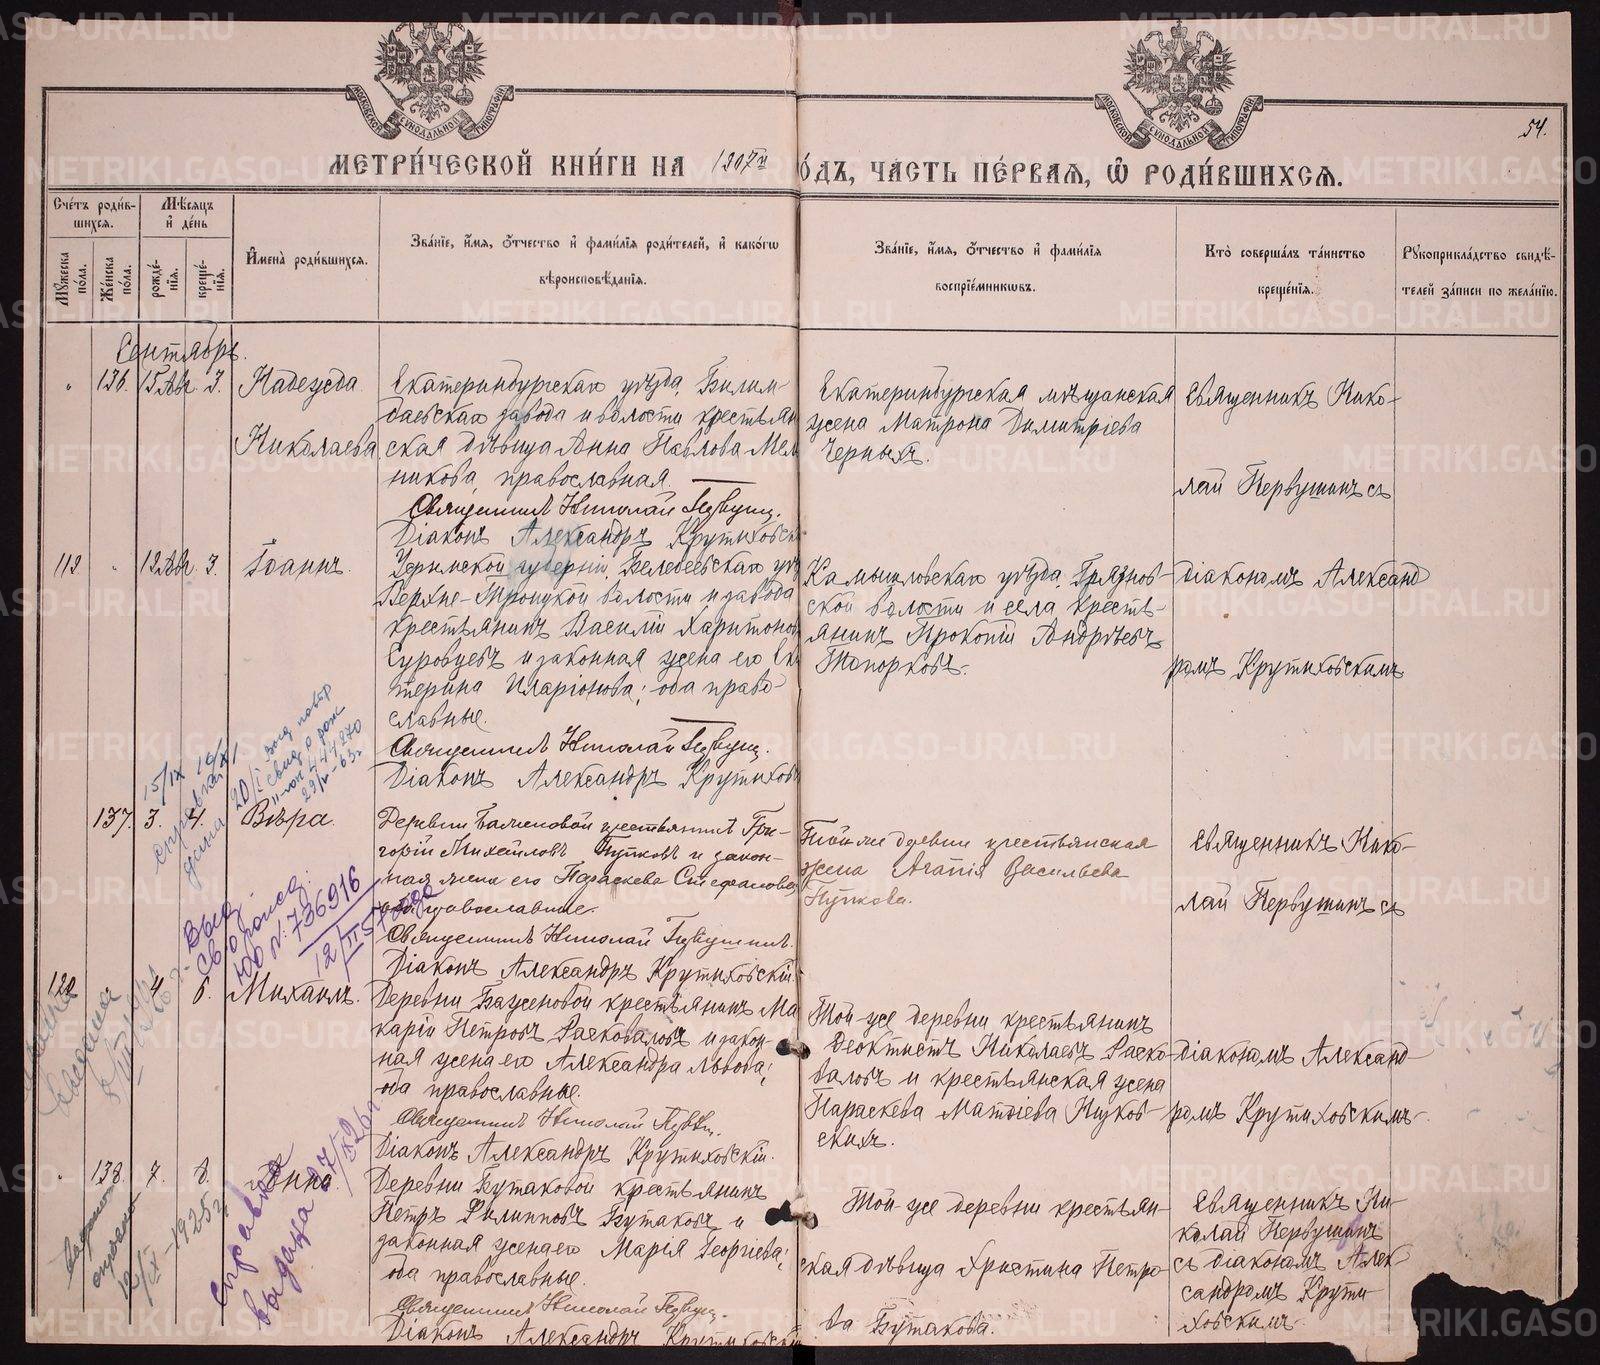 54.
МЕТРИ́ЧЕСКОЙ КНИ́ГИ НА 1907й
ѠДЪ, ЧА́СТЬ ПЕ́РВАѦ, Ѡ҆ РОДИ́ВШИХСѦ.
Сче́тъ роди́в-
шихсѧ.
Мѣ́сѧцъ
и҆ де́нь
Мꙋ́жеска
по́ла.
Же́нска
по́ла.
рожде́-
нїѧ.
креще́-
нїѧ.
И҆мена̀ роди́вшихсѧ.
Зва́нїе, и҆́мѧ, ѻ҆́тчество и҆ фами́лїѧ роди́телей, и҆ како́гѡ
вѣроисповѣ́данїѧ.
Зва́нїе, и҆́мѧ, ѻ҆́тчество и҆ фами́лїѧ
воспрїе́мникѡвъ.
Кто̀ соверша́лъ та́инство
креще́нїѧ.
Рꙋкоприкла́дство свидѣ́-
телей за́писи по жела́нїю.
Сентябрь.
" 136. 15 Авг. 3. Надежда
Николаева
Екатеринбургскаго уѣзда, Билим-
баевскаго завода и волости крестьян
ская дѣвица Анна Павлова Мел
никова, православная.
Священникъ Николай Первуш.
Діаконъ Александръ Крутиховск
Екатеринбургская мѣщанская
жена Матрона Димитріева
Черныхъ.
Священникъ Нико-
лай Первушинъ съ
112 " 12 Авг. 3. Іоаннъ
Уфимской губерніи, Белебеевскаго уѣз
Верхне-Троицкой волости и завода
крестьянинъ Василій Харитонов
Суровцевъ и законная жена его Ека
терина Иларіонова; оба право-
славные.
Священникъ Николай Первуш.
Діаконъ Александръ Крутихов
Камышловскаго уѣзда, Грязнов-
ской волости и села кресть-
янинъ Прокопій Андреевъ
Топорковъ.
діакономъ Александ
ромъ Крутиховскимъ
15/IX
справка
дана
20/I выд повтор
свид о рож
29/V-63г
137. 3. 4. Вѣра.
Деревни Баженовой крестьянинъ Гри-
горій Михайловъ Пупковъ и закон-
ная жена его Параскева Стефанова
оба православные.
Священникъ Николай Первушинъ.
Діаконъ Александръ Крутиховскій.
Той же деревни крестьянская
жена Агапія Васильева
Пупкова.
Священникъ Нико-
лай Первушинъ съ
Выд.
св о рожд.
ЮО №736916
12/II 57 года
120 4 6. Михаилъ.
Деревни Баженовой крестьянинъ Ма
карій Петровъ Расковаловъ и закон-
ная жена его Александра Львова;
оба православные.
Священникъ Николай Первуш.
Діаконъ Александръ Крутиховскій.
Той-же деревни крестьянинъ
Ѳеоктистъ Николаевъ Раско-
валовъ и крестьянская жена
Параскева Матѳіева Пупков-
скихъ.
діакономъ Александ-
ромъ Крутиховскимъ.
" 138. 7. 8. Анна.
Деревни Бутаковой крестьянинъ
Петръ Филипповъ Бутаковъ и
законная жена его Марія Георгіева;
оба православные.
Священникъ Николай Первуш.
Діаконъ Александръ Крутиховскій
Той-же деревни крестьян-
ская дѣвица Христина Петро-
ва Бутакова.
Священникъ Ни-
колай Первушинъ
съ діакономъ Алек-
сандромъ Крути
ховскимъ.
12/IX-1925г.
справка
выдана
METRIKI.GASO-URAL.RU